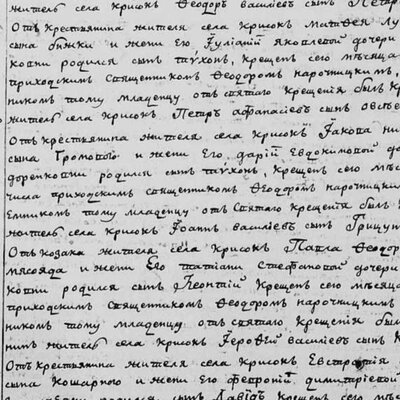 житель села крисокъ Ѳеодоръ василевъ сынъ Петр
Отъ крестьянина жителя села крисокъ Матвея Лу
сына бижки и жены Его Іулианіи яковлевой дочери
ковни родился сынъ тихонъ, крещенъ сего мѣсяца
приходскимъ священникомъ Ѳеодоромъ нарочницкимъ,
никомъ тому младенцу отъ святаго крещения былъ кр
житель села крисокъ Петръ афанасиевъ сынъ овсѣе
Отъ крестьянина жителя села крисокъ Іакова ни
сына Громовою и жены Его дарии Евдокимовой до
доренковни родился сынъ тихонъ, крещенъ сего мѣ
числа приходскимъ священникомъ Ѳеодоромъ нарочницким
Емникомъ тому младенцу отъ святаго крещения былъ
житель села крисокъ Іоаннъ василиевъ сынъ Грицун
Отъ козака жителя села крисокъ Павла Ѳеодор
мясояда и жены Его татиани Стефановой дочери
ковни родился сынъ Леонтий крещенъ сего мѣсяца
приходскимъ священникомъ Ѳеодоромъ нарочницкимъ
никомъ тому младенцу отъ святаго крещения был
нинъ житель села крисокъ Іероѳий василиевъ сынъ
Отъ крестьянина жителя села крисокъ Евстафия
сына Кошарною и жены Его феѳронии димитриевой
родился сынъ Давидъ крещенъ сего мѣ